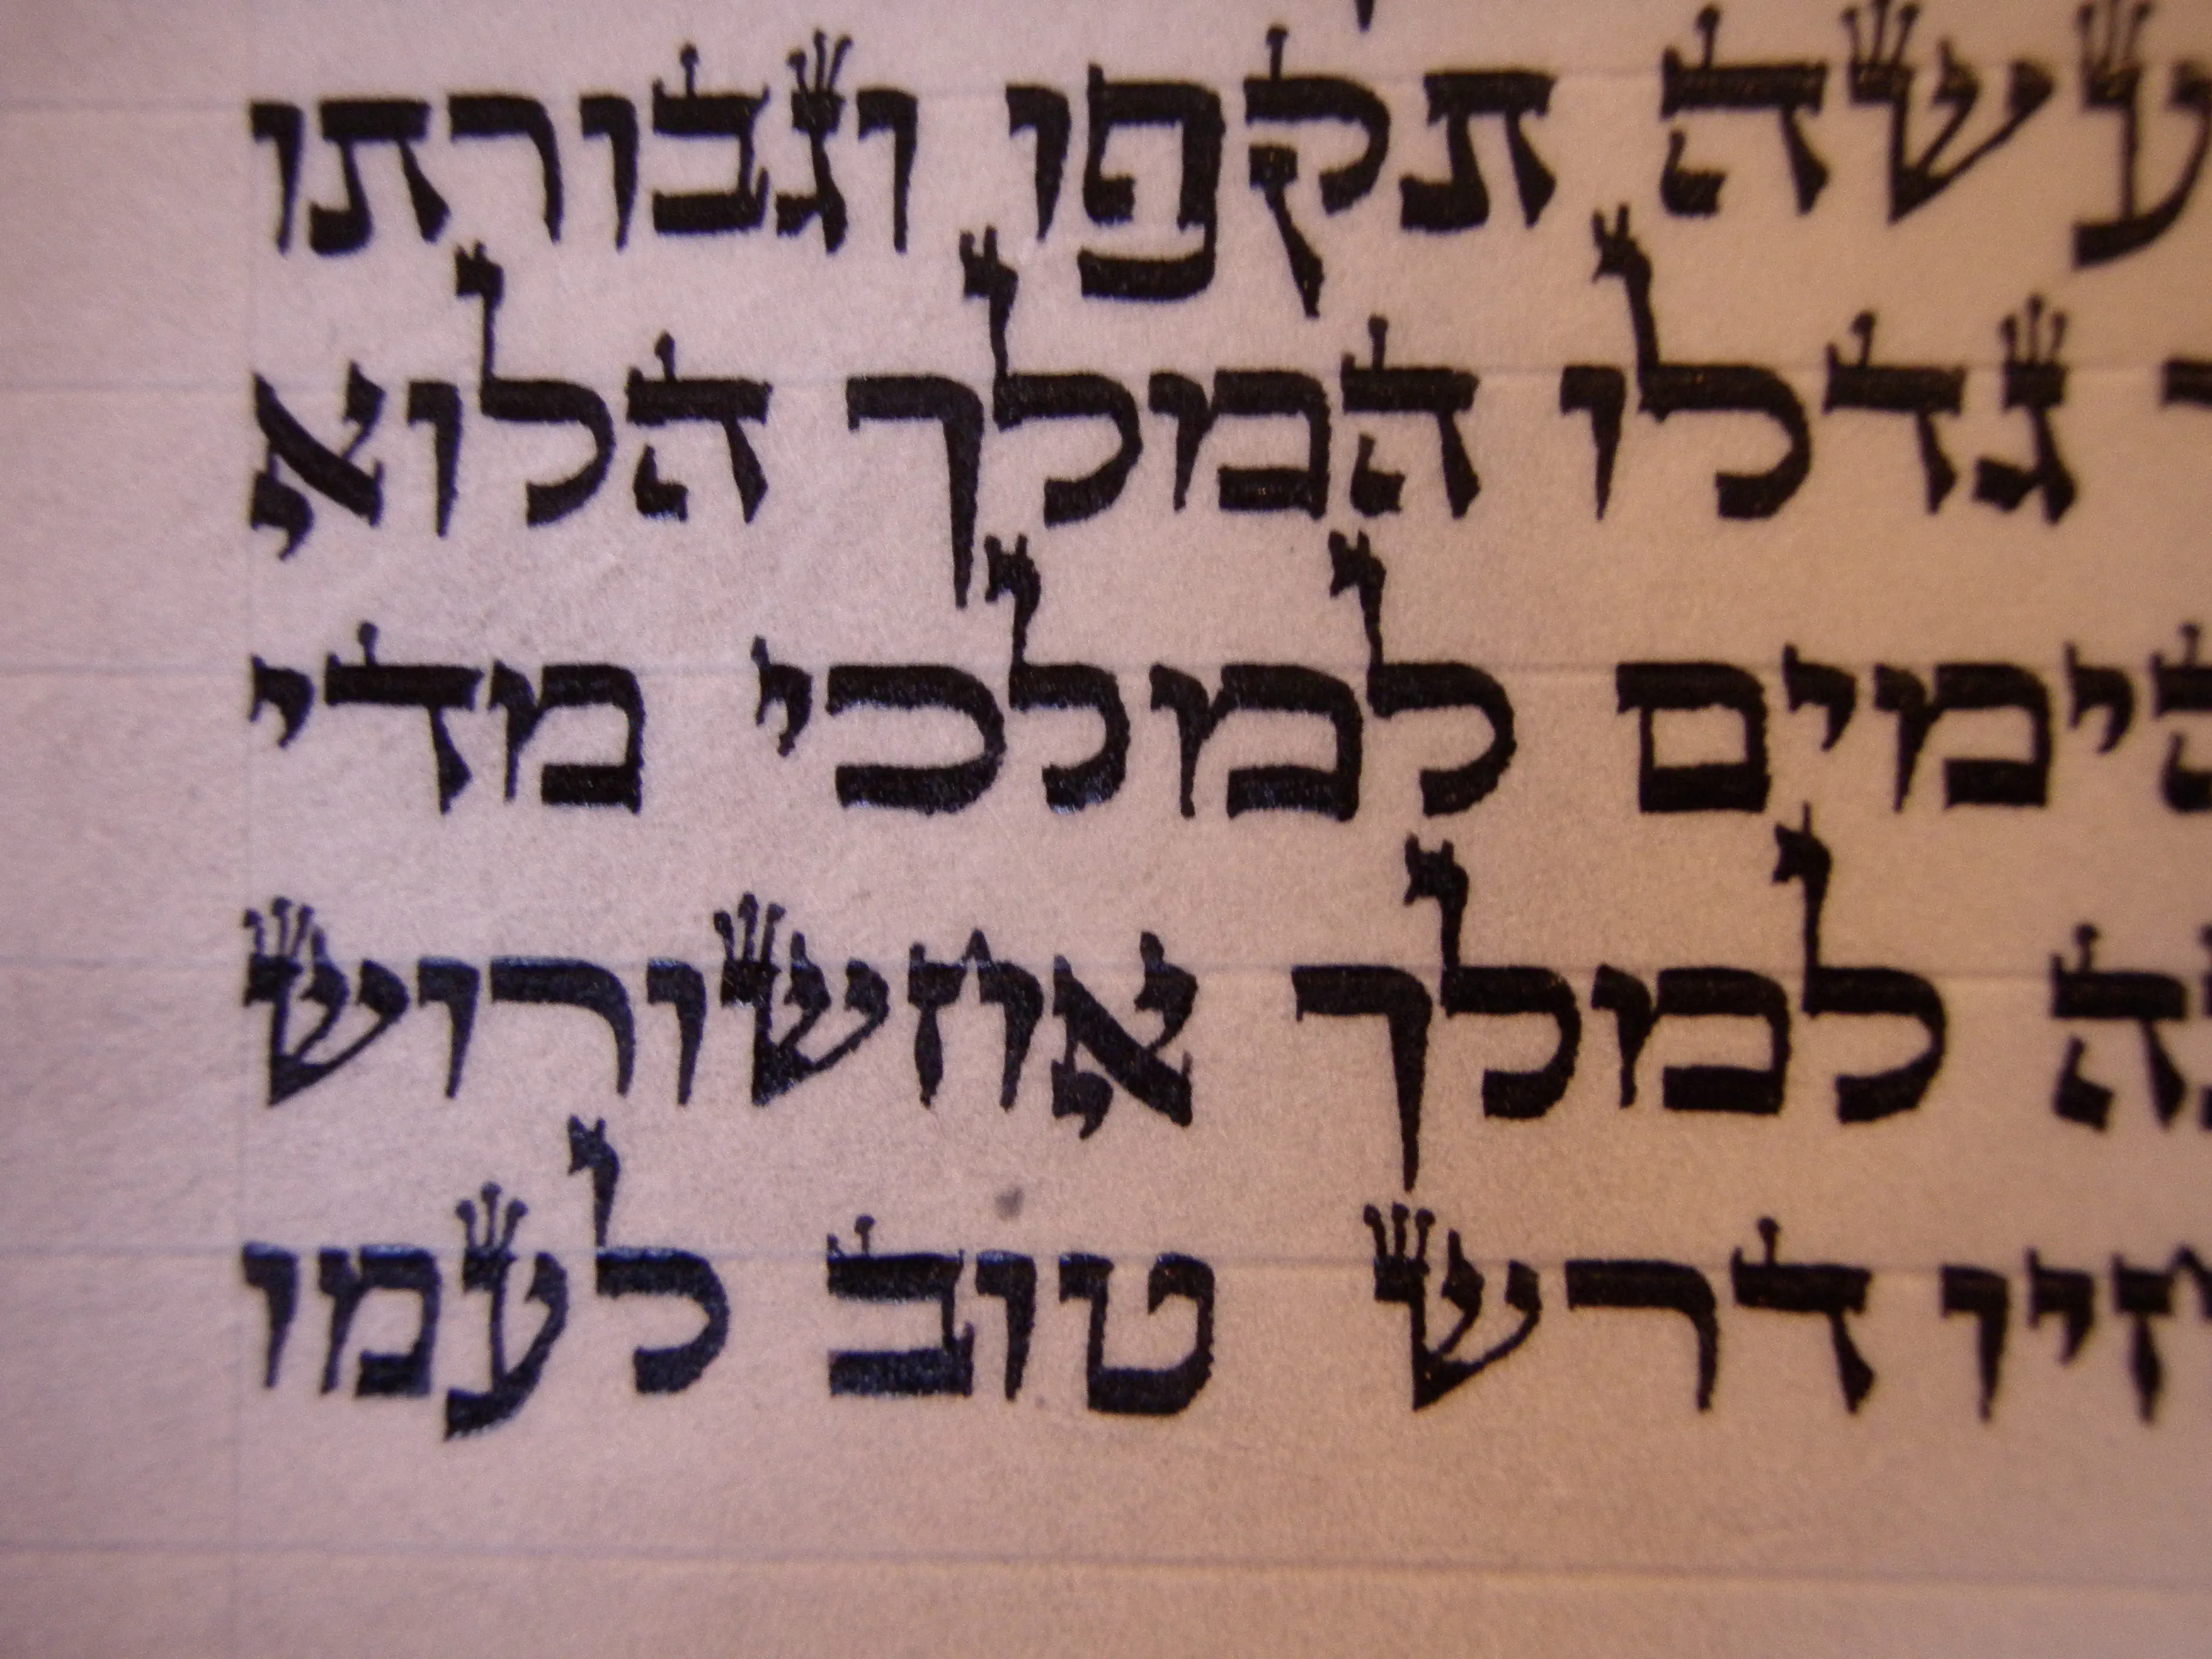 עשה תקפו וגבורתו
גדלו המלך הלוא
הימים למלכי מדי
ה למלך אחשורוש
חיו דרש טוב לעמו